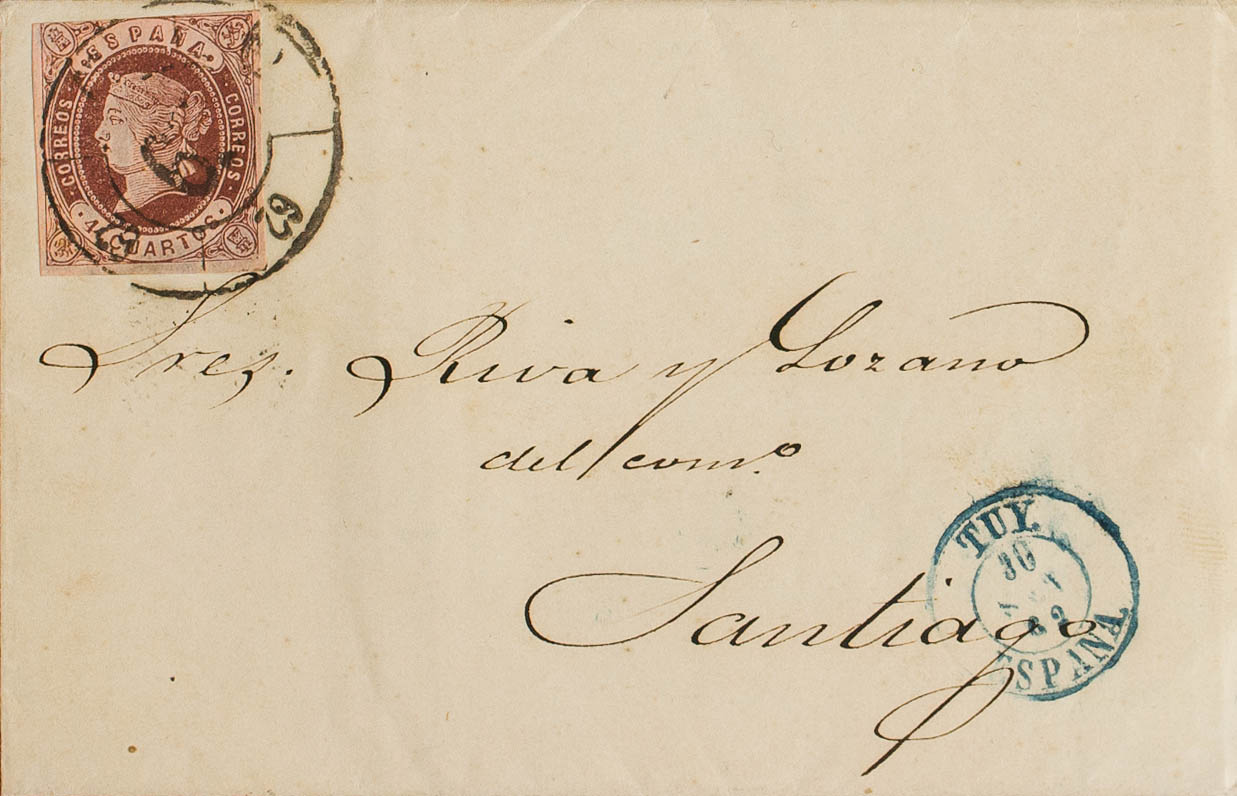 ESPAÑA
CORREOS
CORREOS
4 CUARTOS
62
Sres. Riva y Lozano
del com.o
Santiago
TUY.
ESPAÑA.